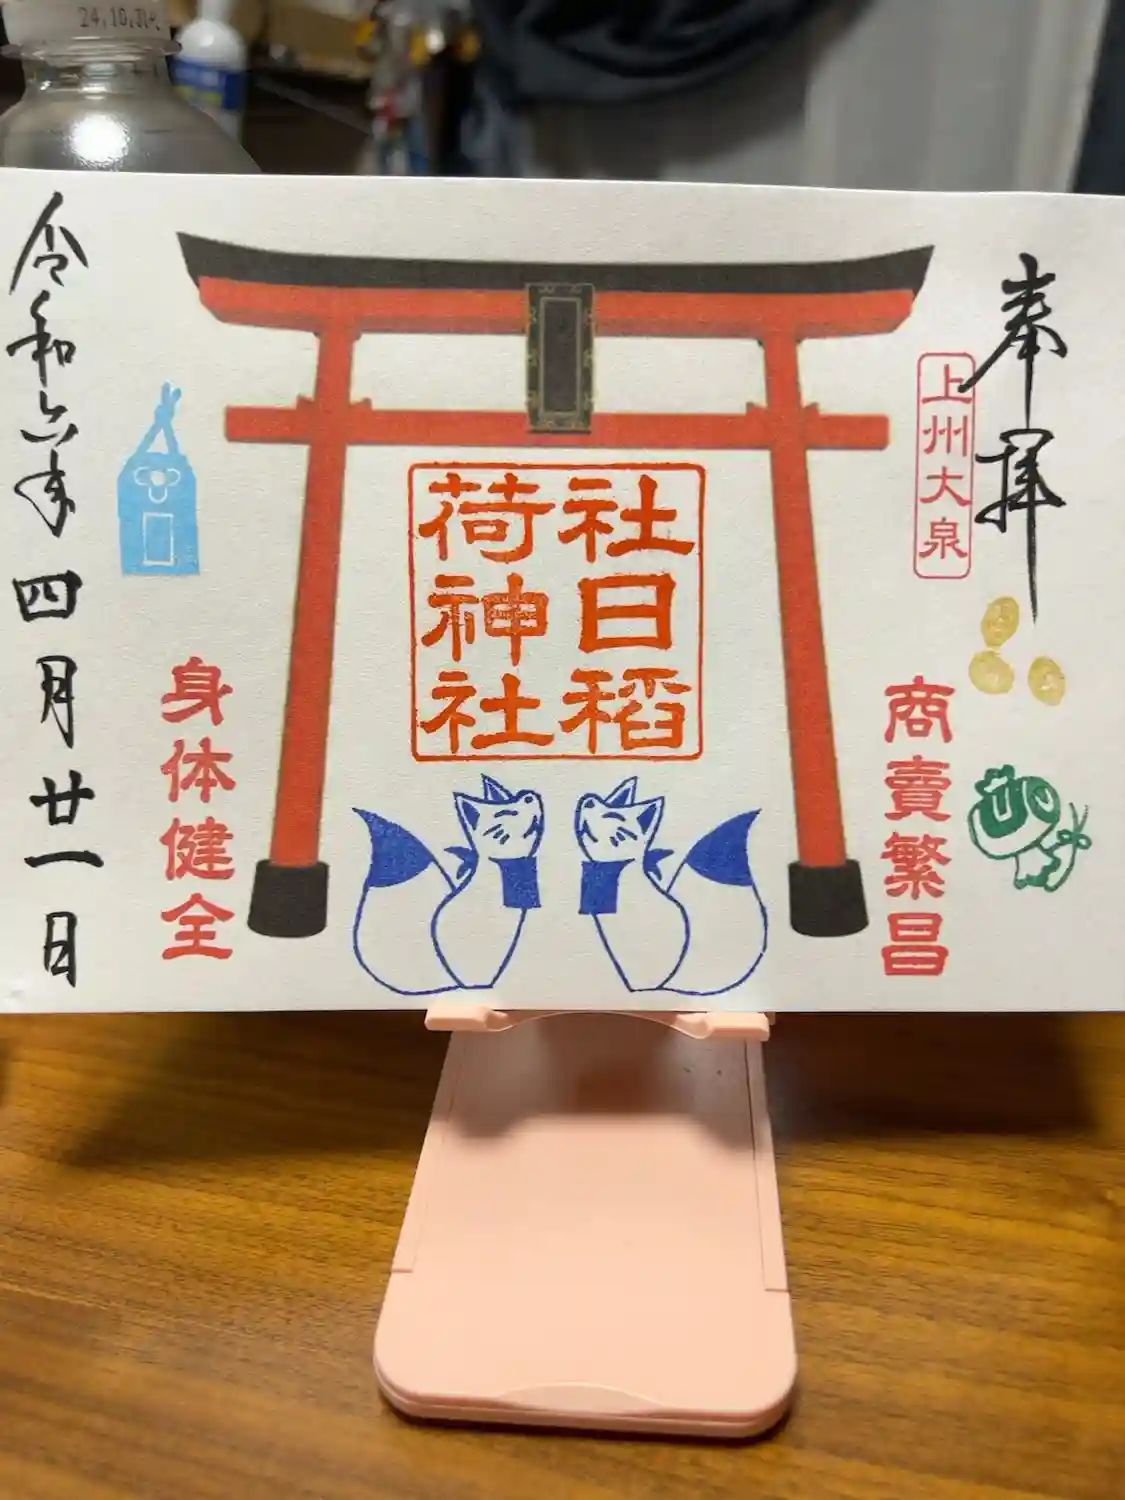 奉拝
上州大泉
商賣繁昌
社日稻
荷神社
身体健全
令和六年四月廿一日